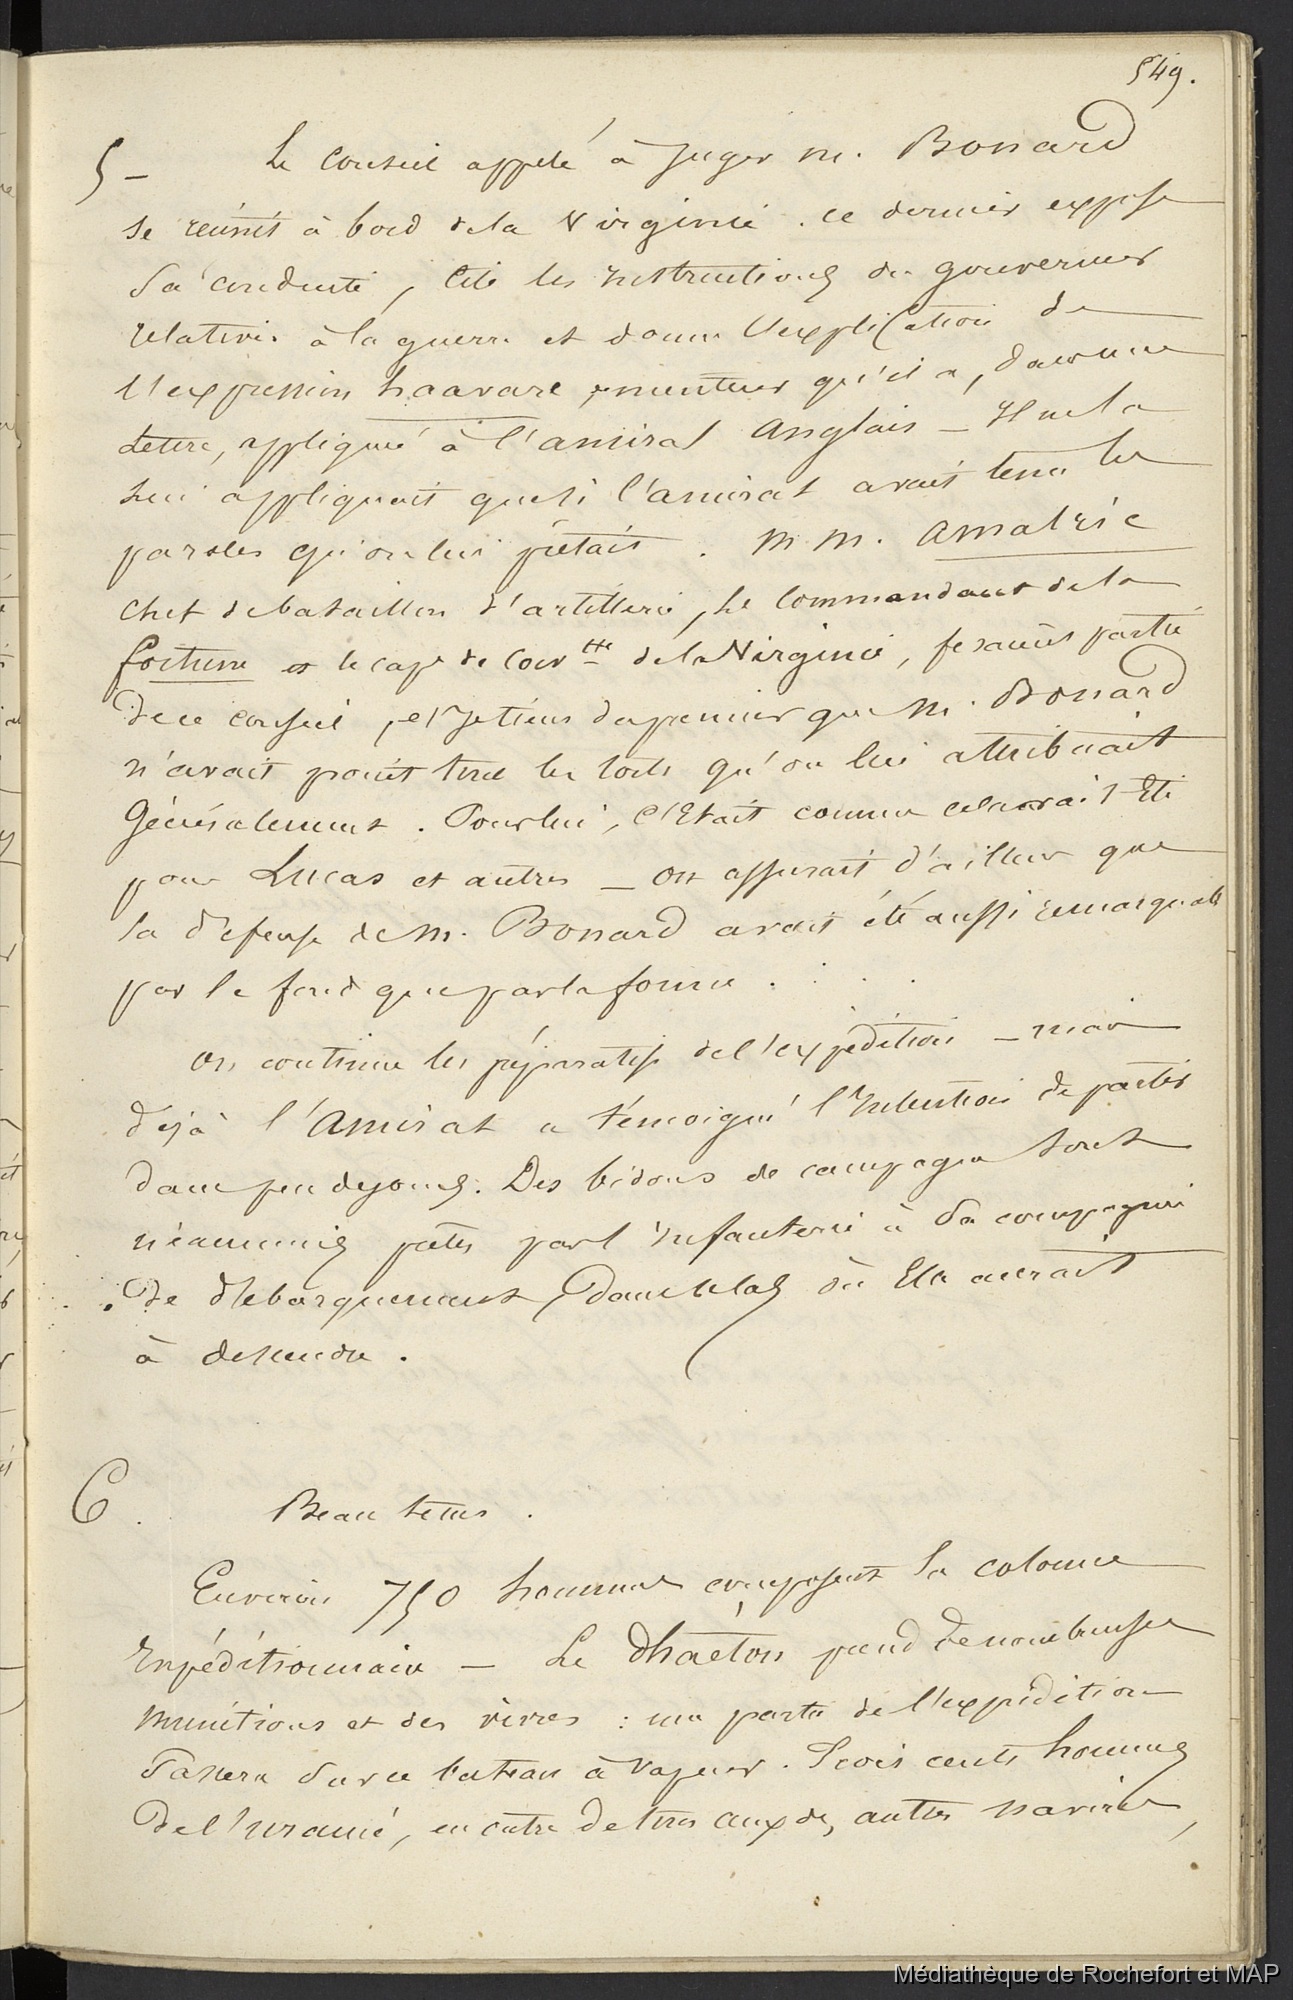 549.
5 - Le conseil appelé à Juger m. Bonard
se réunit à bord de la Virginie. ce dernier expose
sa conduite, cite les instructions du gouverneur
relatives à la guerre et donne l'explication de
l'expression haavare, menteur qu'il a, dans une
lettre, appliqué à l'amiral anglais - Il ne la
lui appliquait que si l'amiral avait tenu les
paroles qu'on lui prêtait. M.M. Amalric
chef de bataillon d'artillerie, le Commandant de la
fortune et le cap. de corv.tte de la Virginie, fesaient partie
de ce conseil, et je tiens du premier que M. Bonard
n'avait point tous les torts qu'on lui attribuait
Généralement. Pour lui, c'Etait comme cela avait Eté
pour Lucas et autres - on assurait d'ailleur que
la défense de M. Bonard avait été aussi remarquable
par le fond que par la forme. . . .
on continue les préparatifs de l'expédition - mais
déjà l'Amiral a témoigné l'Intention de partir
dans peu de jours. Des bidons de campagne sont
néanmoins prêtés par l'infanterie à la compagnie
de débarquement, dans le cas où Elle aurait
à descendre.
6. Beau tems.
Environ 750 hommes composent la colonne
Expéditionnaire - Le Phaéton prend de nombreuses
munitions et des vivres : une partie de l'expédition
Passera sur ce bateau à vapeur. Trois cents hommes
de l'uranie, en outre de ceux des autres navires,
Médiathèque de Rochefort et MAP